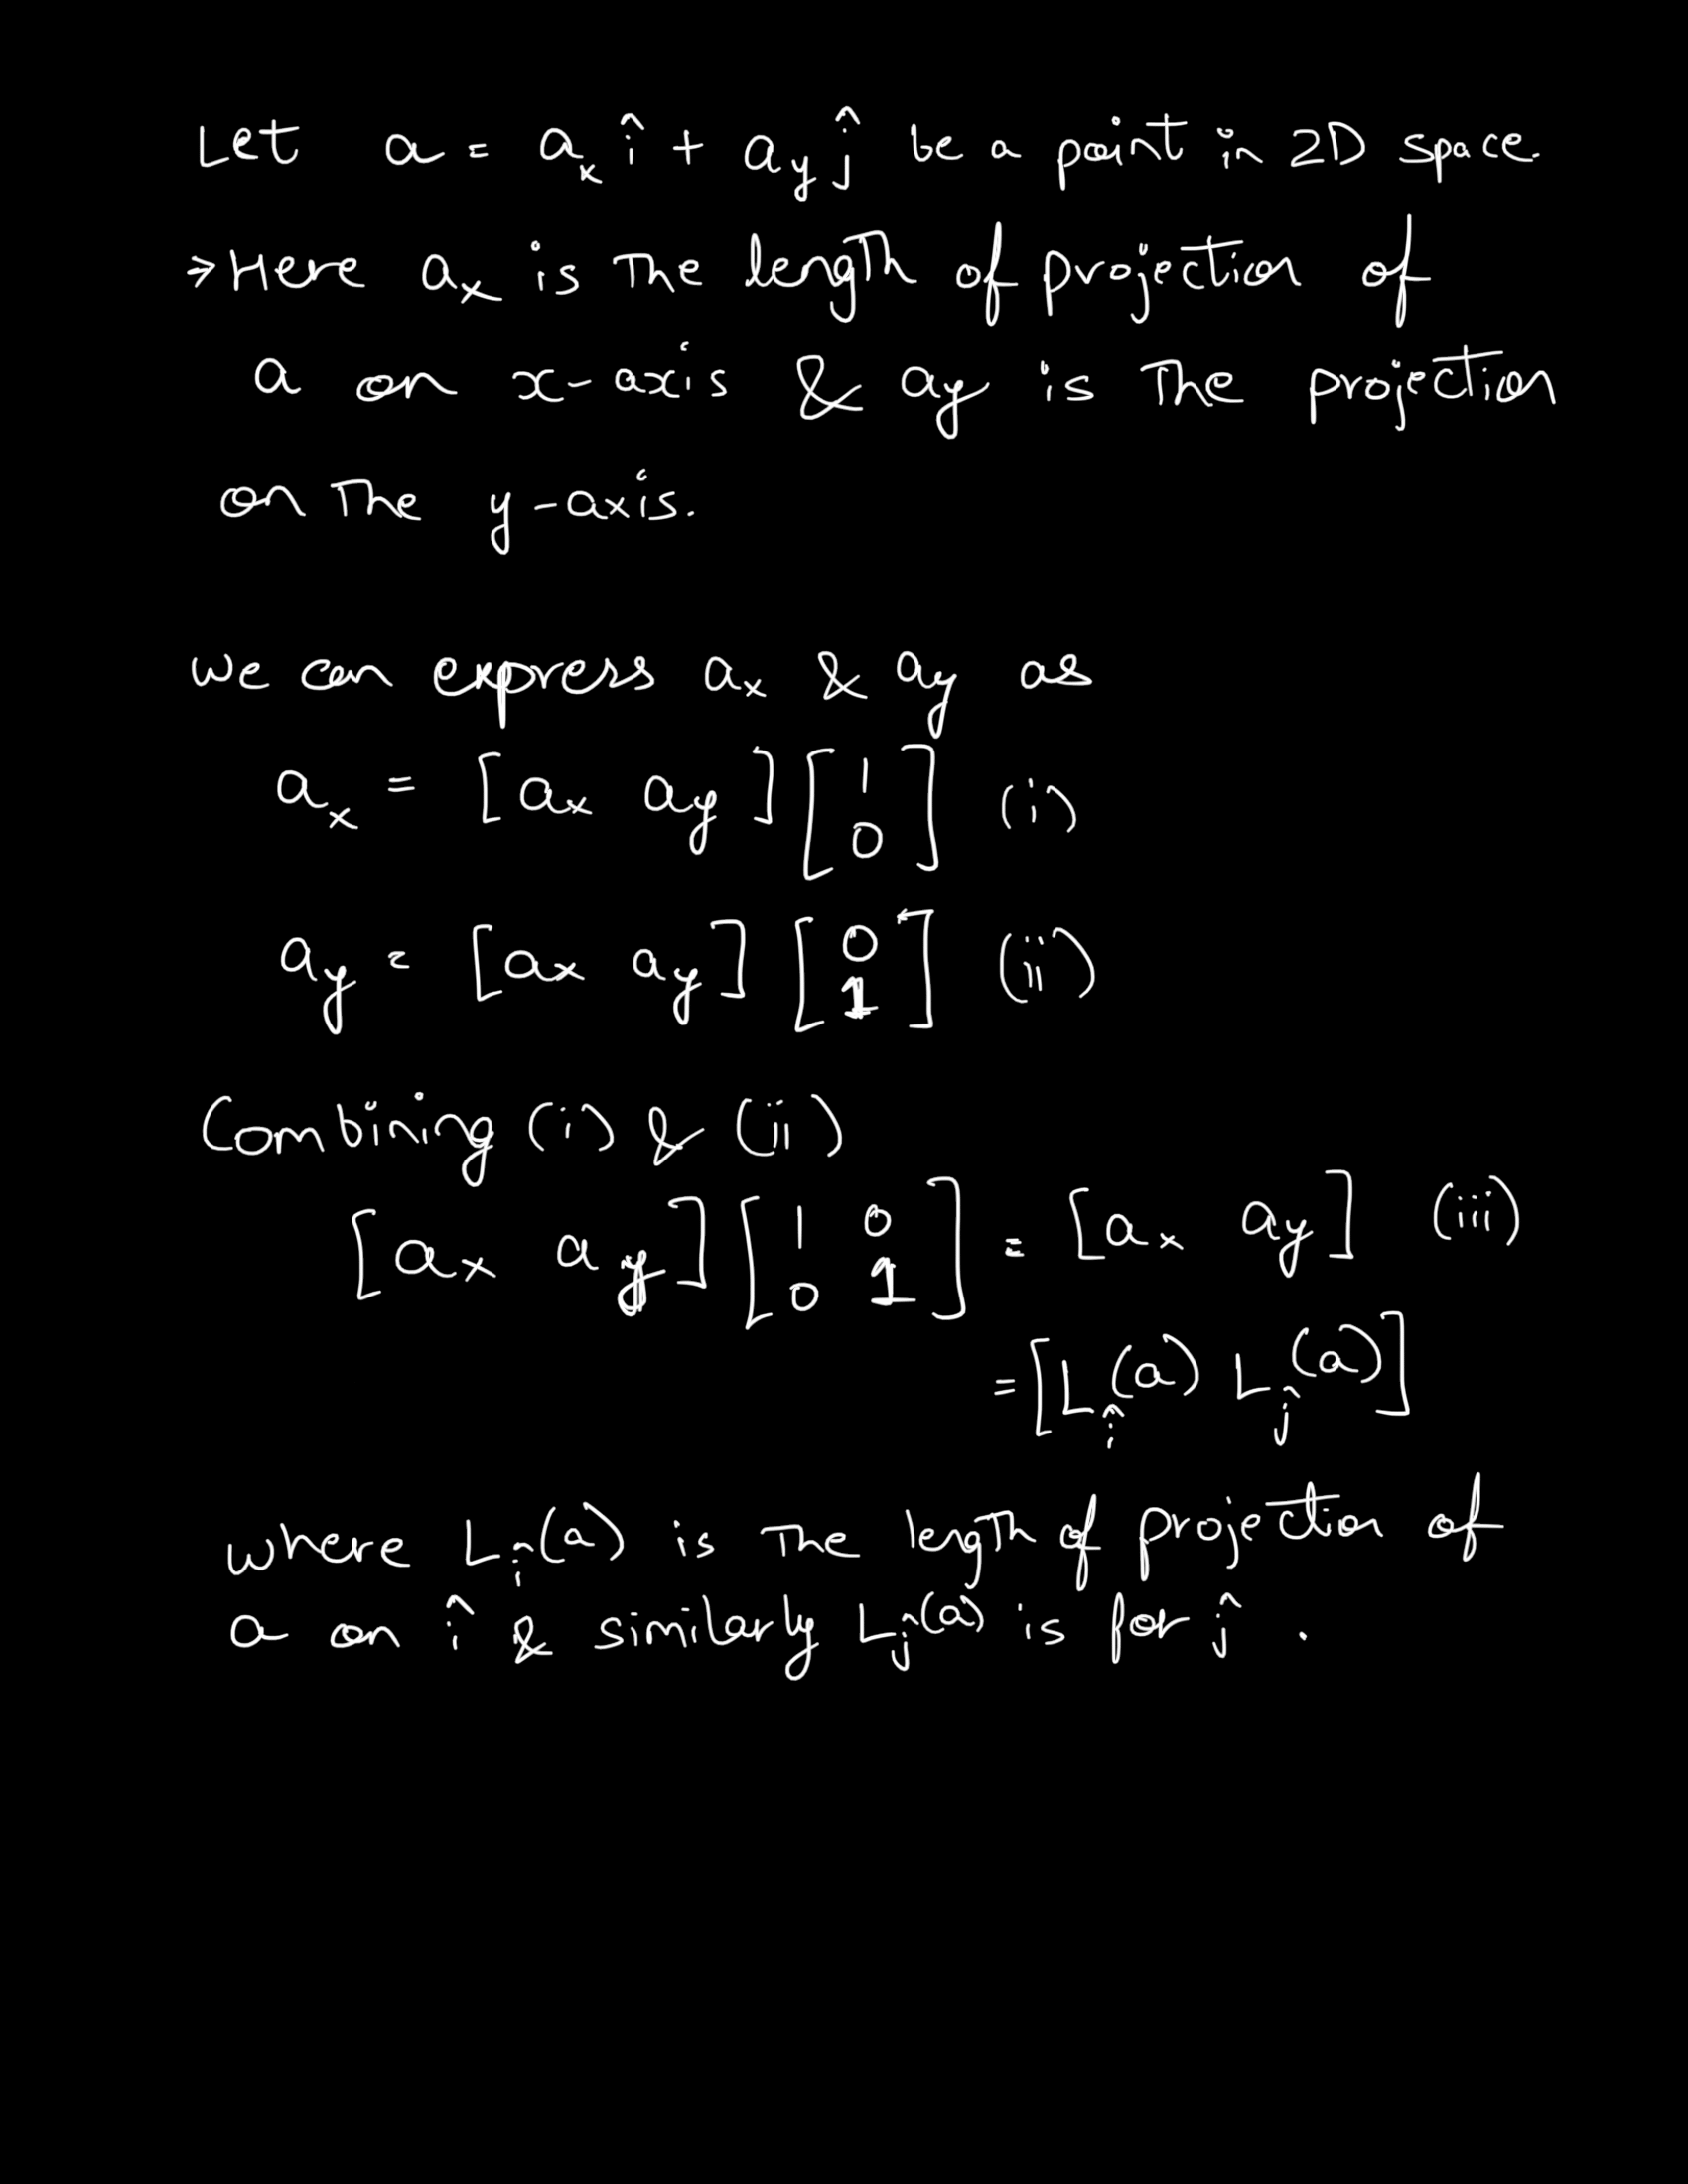 Let a = aₓ î + a_y ĵ be a point in 2D space.
→ Here aₓ is the length of projection of
a on x-axis & a_y is the projection
on the y-axis.
we can express aₓ & a_y as
aₓ = [aₓ a_y] [1 0] (i)
a_y = [aₓ a_y] [0 1] (ii)
Combining (i) & (ii)
[aₓ a_y] [1 0
0 1] = [aₓ a_y] (iii)
= [L_î(a) L_ĵ(a)]
where L_î(a) is the length of projection of
a on î & similarly L_ĵ(a) is for ĵ.